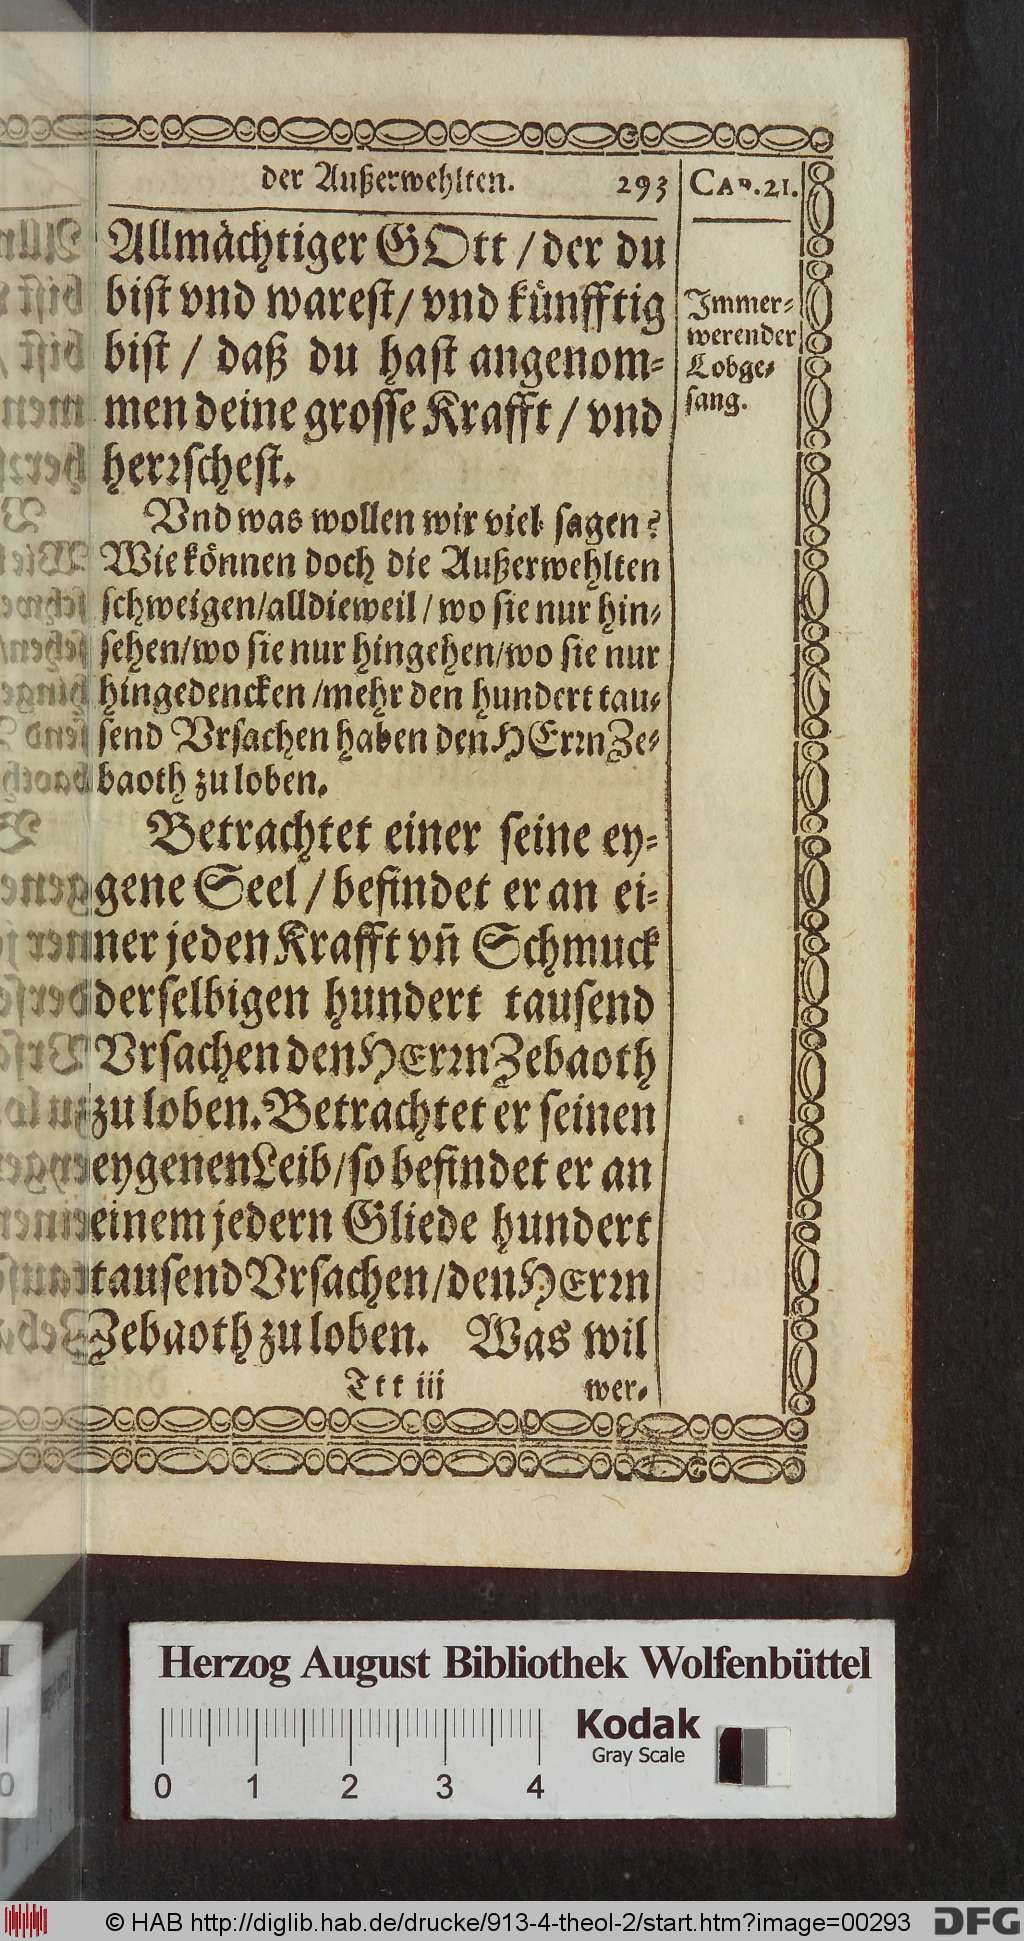 der Außerwehlten. 293 CAP.21.
Allmächtiger GOtt / der du
bist vnd warest / vnd künfftig
bist / daß du hast angenom-
men deine grosse Krafft / vnd
herꝛschest.
Immer-
werender
Lobge-
sang.
Vnd was wollen wir viel sagen?
Wie können doch die Außerwehlten
schweigen/alldieweil / wo sie nur hin-
sehen/wo sie nur hingehen/wo sie nur
hingedencken /mehr den hundert tau-
send Vrsachen haben den HErꝛn Ze-
baoth zu loben.
Betrachtet einer seine ey-
gene Seel / befindet er an ei-
ner jeden Krafft vn̄ Schmuck
derselbigen hundert tausend
Vrsachen den HErꝛn Zebaoth
zu loben. Betrachtet er seinen
eygenen Leib/so befindet er an
einem jedern Gliede hundert
tausend Vrsachen/den HErꝛn
Zebaoth zu loben. Was wil
Ttt iii wer-
Herzog August Bibliothek Wolfenbüttel
Kodak
Gray Scale
0 1 2 3 4
© HAB http://diglib.hab.de/drucke/913-4-theol-2/start.htm?image=00293
DFG